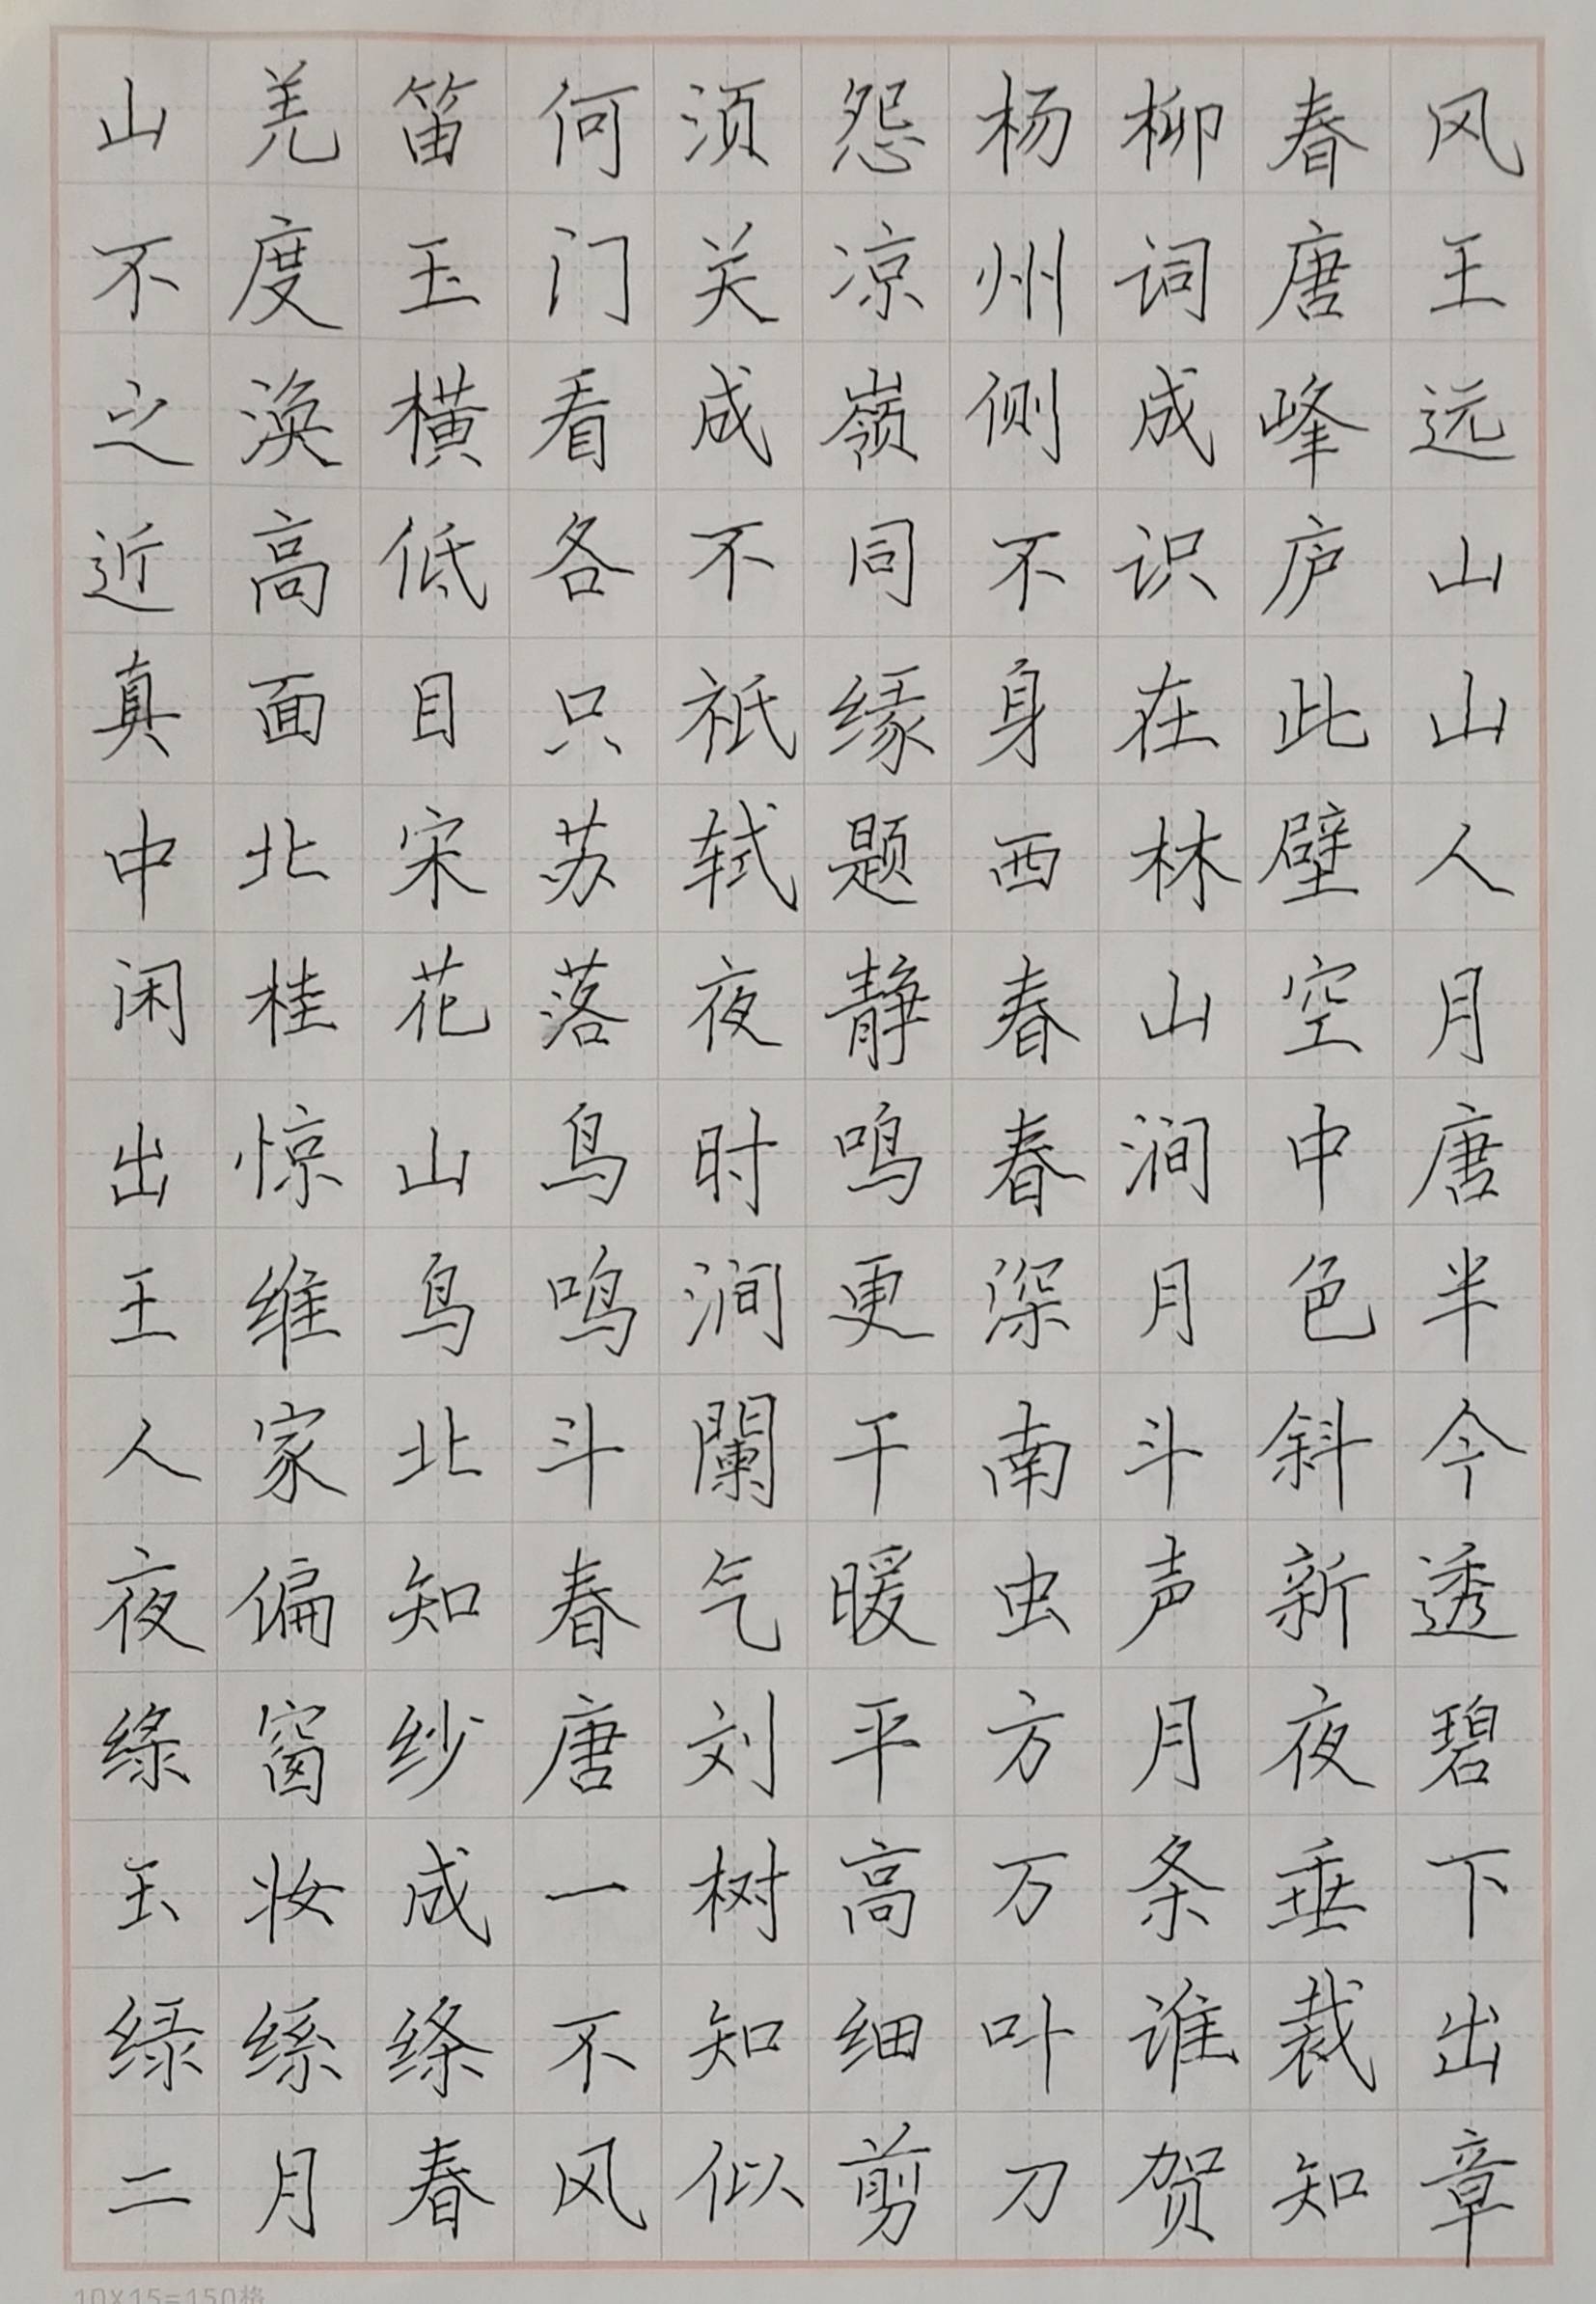 山羌笛何须怨杨柳春风
不度玉门关凉州词唐王
之涣横看成嶺侧成峰远
近高低各不同不识庐山
真面目只祇缘身在此山
中北宋苏轼题西林壁人
闲桂花落夜静春山空月
出惊山鸟时鸣春涧中唐
王维鸟鸣涧更深月色半
人家北斗闌干南斗斜今
夜偏知春气暖虫声新透
绿窗纱唐刘平方月夜碧
玉妆成一树高万条垂下
绿绦不知细叶谁裁出
二月春风似剪刀贺知章
10X15=150格